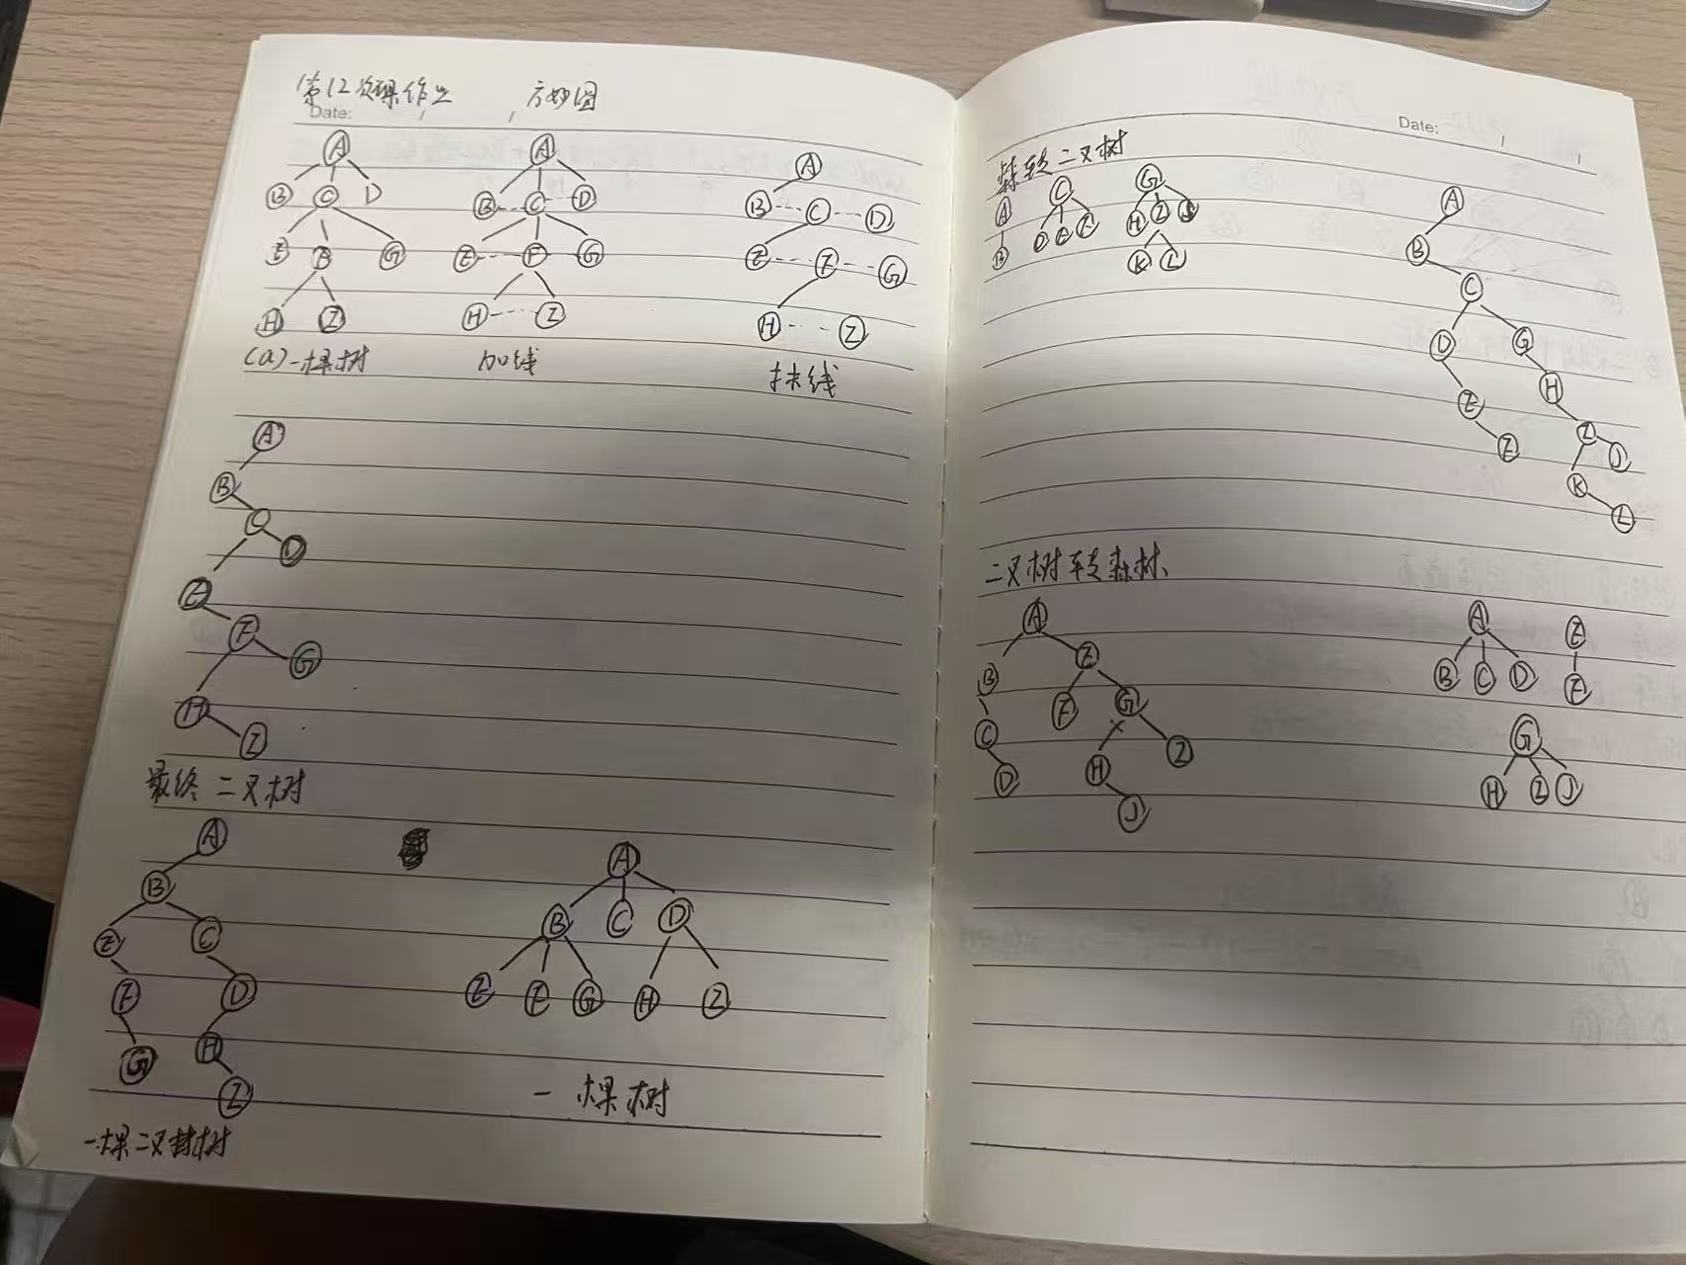 第12次课作业 方妙圆
Date:
A A A
B C D B C D B C D
E B G E F G E F G
H I H I H I
(a)一棵树 加线 抹线
A
B
C
D
E
F
G
H
I
最终二叉树
A A
B B C D
E C
F D E F G H I
G H
I
一棵树
一棵二叉树
Date:
森转二叉树
A C G A
B D E F H I J B
K L C
D G
E H
F I J
K
L
二叉树转森树
A A E
B E B C D F
F G
C H I G
D J H I J